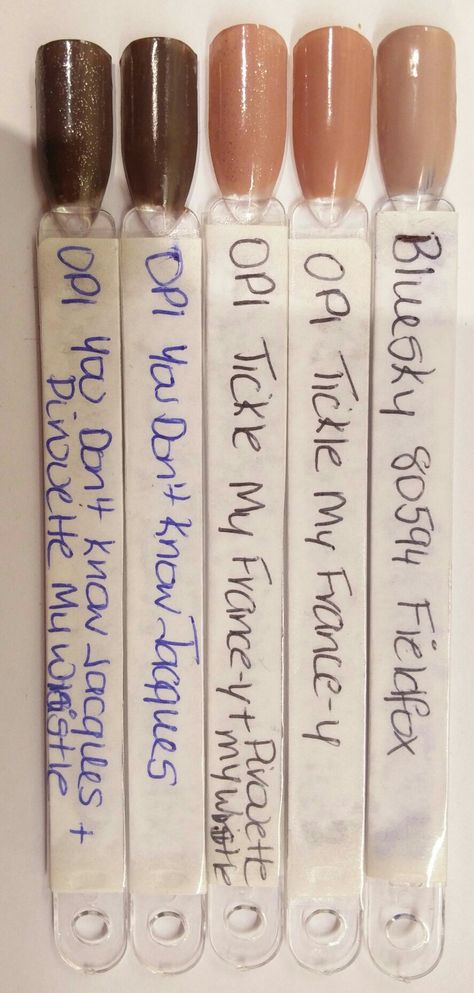 OPI You Don't Know Jacques +
Pirouette My Whistle
OPI You Don't Know Jacques
OPI Tickle My France-y +
Pirouette
my whistle
OPI Tickle My France-y
Bluesky 80594 Fieldfox